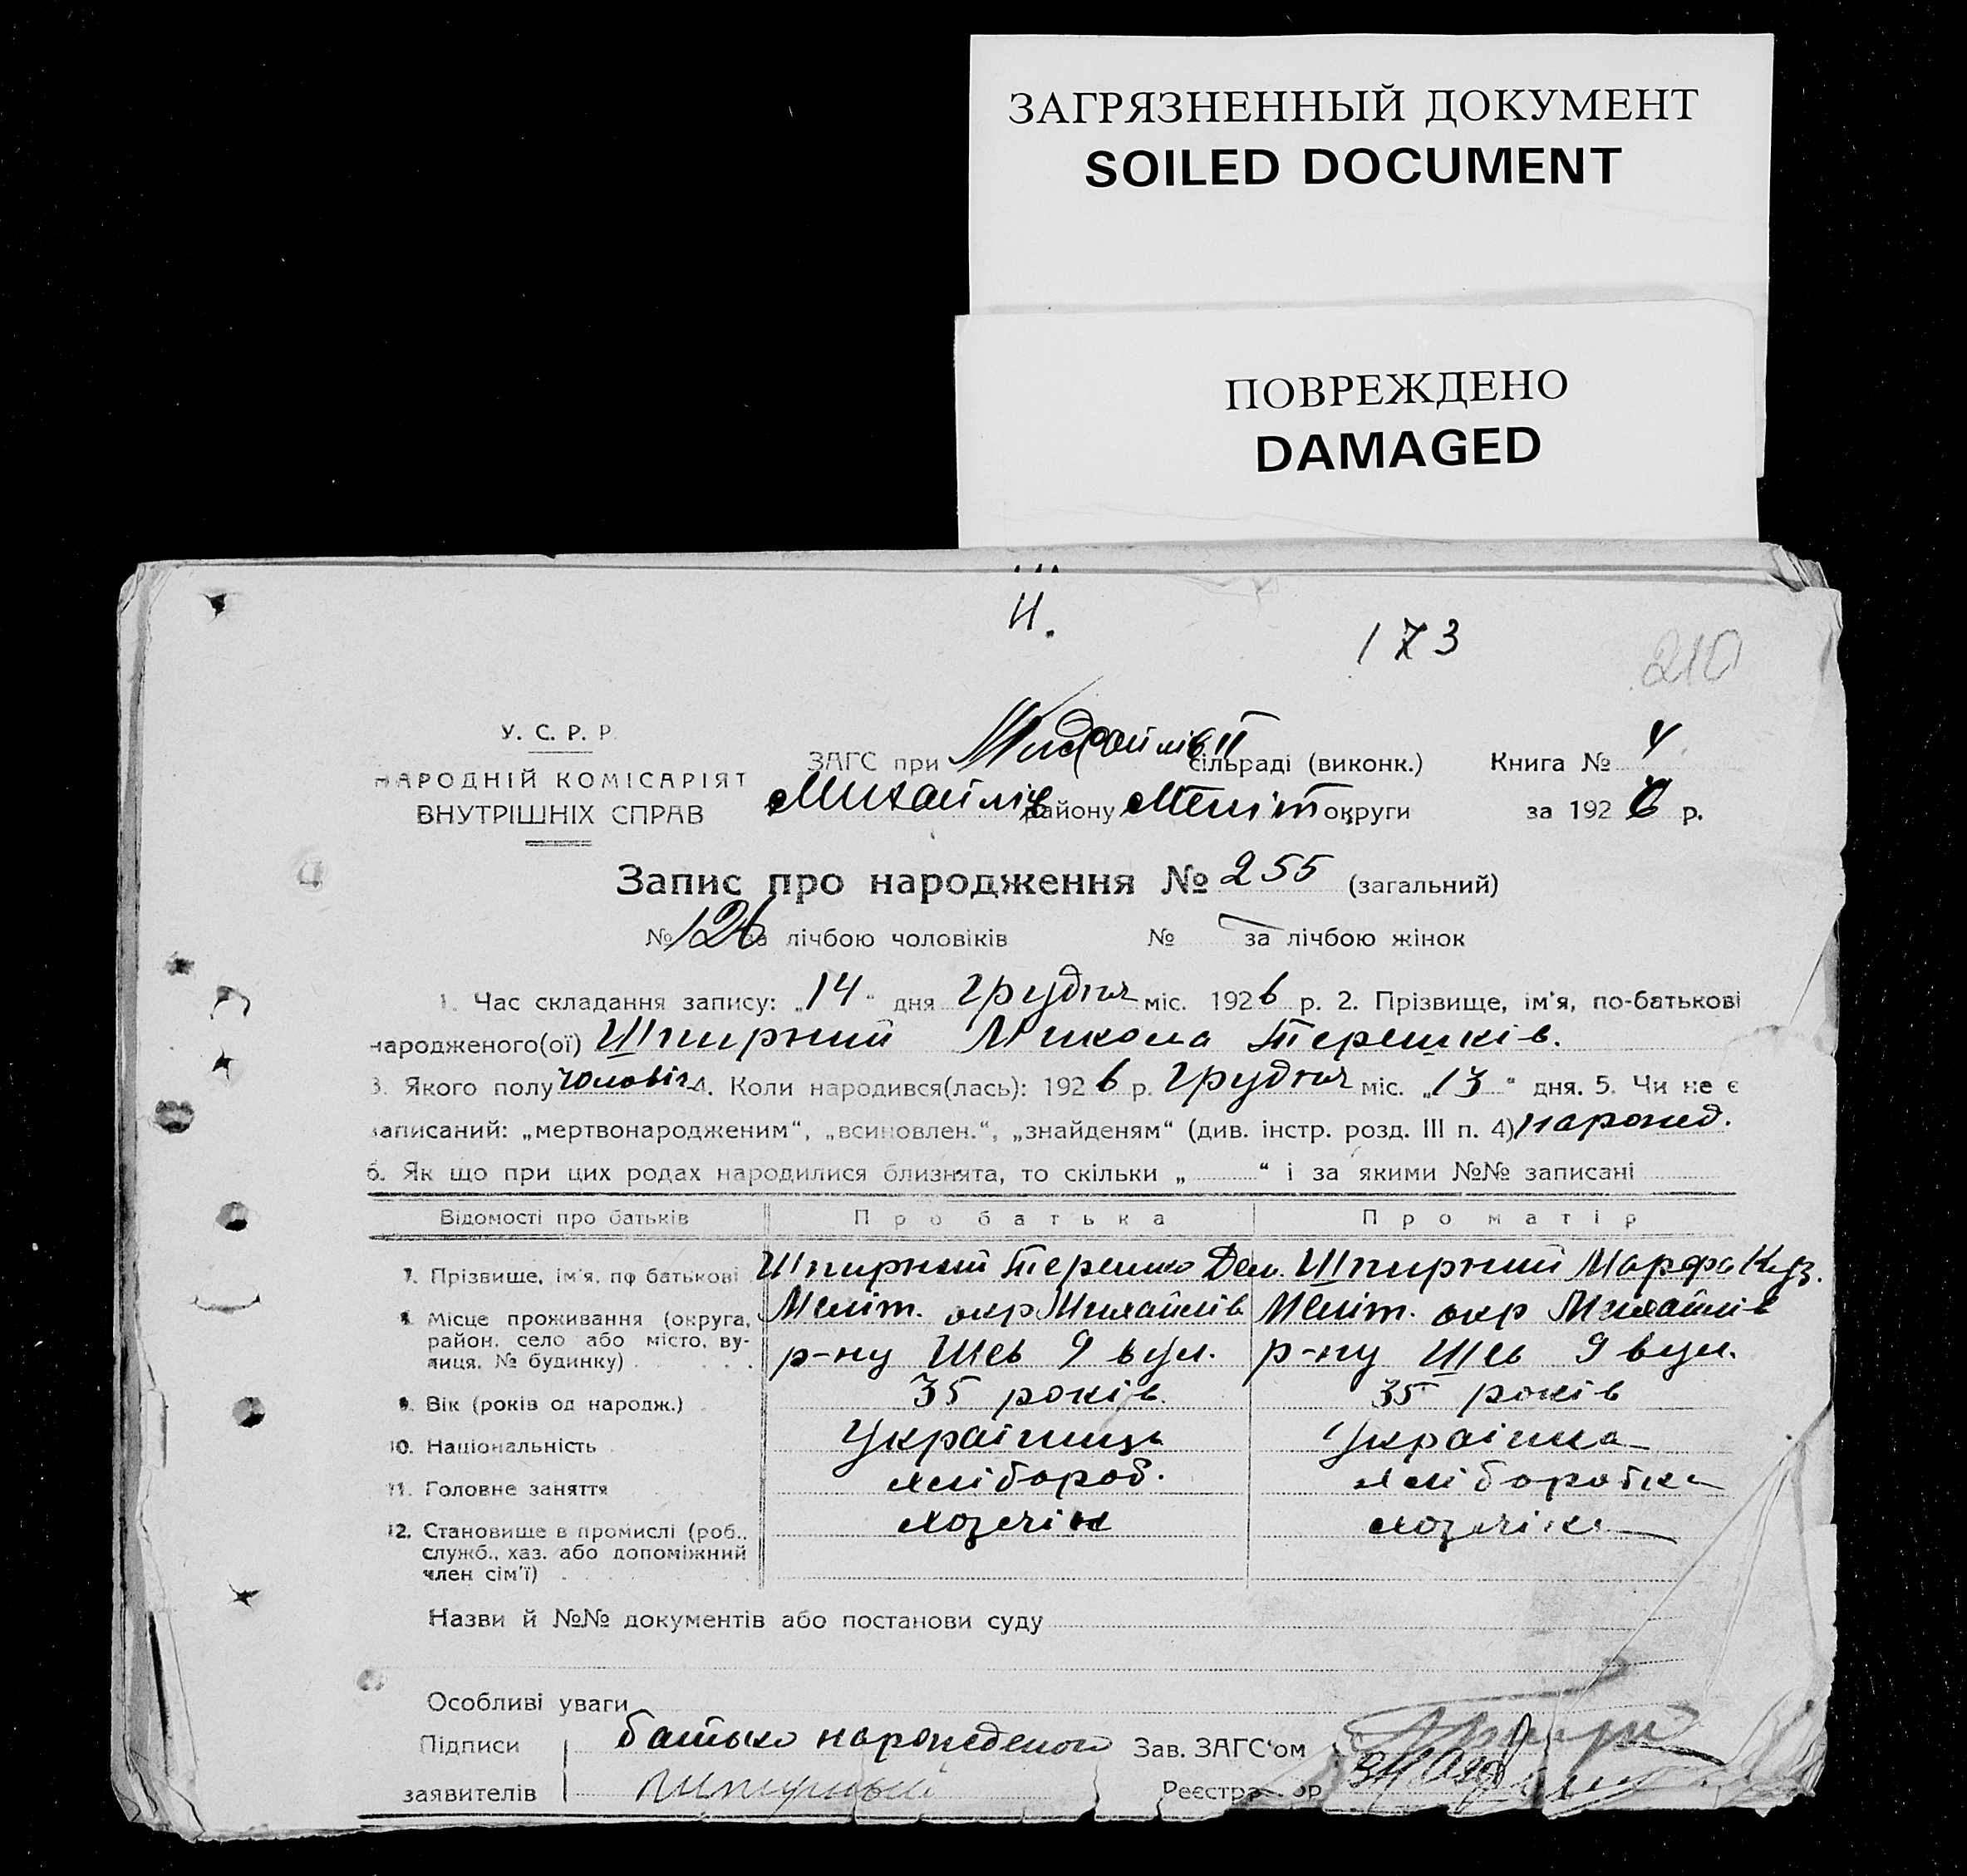 ЗАГРЯЗНЕННЫЙ ДОКУМЕНТ
SOILED DOCUMENT
ПОВРЕЖДЕНО
DAMAGED
И.
173
210
У. С. Р. Р.
НАРОДНІЙ КОМІСАРІЯТ
ВНУТРІШНІХ СПРАВ
ЗАГС при Михайлів II сільраді (виконк.) Книга № 4
Михайлів району Меліт округи за 1926 р.
Запис про народження № 255 (загальний)
№ 126 за лічбою чоловіків № за лічбою жінок
1. Час складання запису: „14“ дня грудня міс. 1926 р. 2. Прізвище, ім'я, по-батькові
народженого(ої) Шпирний Микола Терешків.
3. Якого полу чоловіч 4. Коли народився(лась): 1926 р. грудня міс. „13“ дня. 5. Чи не є
записаний: „мертвонародженим“, „всиновлен.“, „знайденям“ (див. інстр. розд. III п. 4) нарожд.
6. Як що при цих родах народилися близнята, то скільки „ “ і за якими №№ записані
Відомості про батьків Про батька Про матір
7. Прізвище, ім'я, по батькові Шпирний Терешко Дем. Шпирний Марфа Куз.
8. Місце проживання (округа, район, село або місто, вулиця, № будинку) Меліт. окр Михайлів Меліт. окр Михайлів
р-ну Шев 9 вул. р-ну Шев 9 вул.
9. Вік (років од народж.) 35 років. 35 років
10. Національність Україниць Українка
11. Головне заняття хлібороб. хліборобка
12. Становище в промислі (роб., служб., хаз. або допоміжний член сім'ї) хозяїн хозяїка
Назви й №№ документів або постанови суду
Особливі уваги
Підписи батько нарожденого Зав. ЗАГС'ом
заявителів Реєстратор